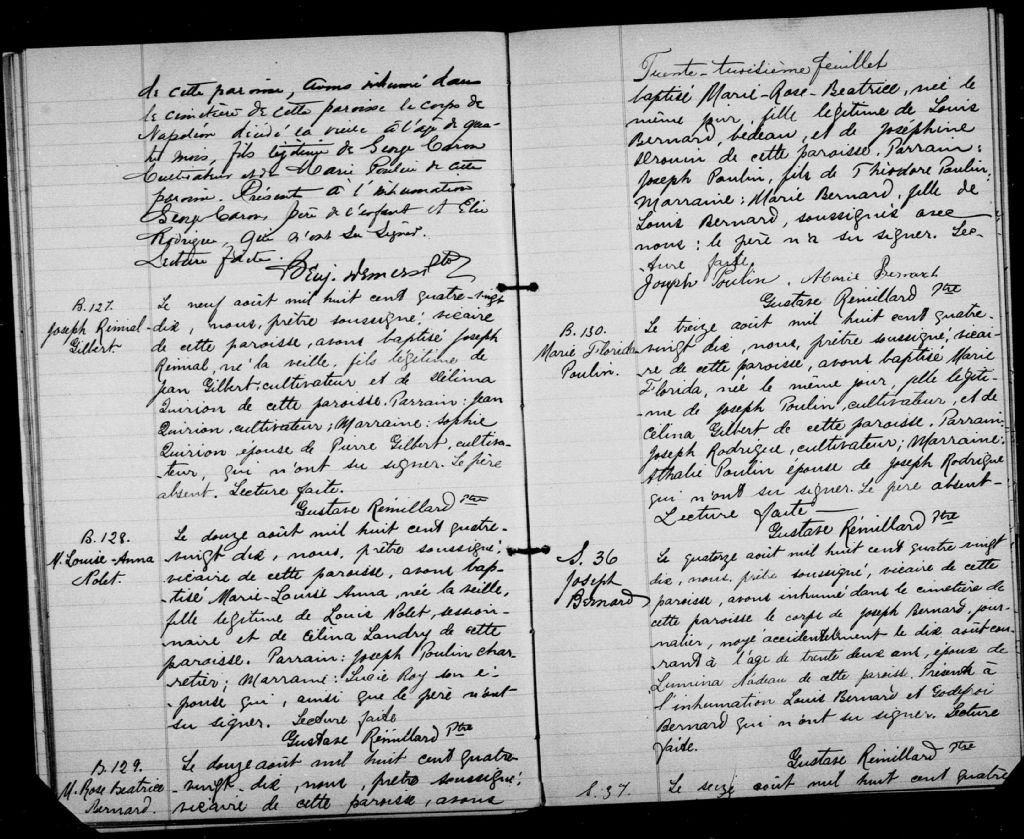 de cette paroisse, avons inhumé dans
le cimetière de cette paroisse le corps de
Napoléon décédé la veille à l'age de qua-
tre mois, fils légitime de George Caron
Cultivateur et de Marie Poulin de cette
paroisse. Présents à l'inhumation
George Caron père de l'enfant et Elie
Rodrigue, qui n'ont su signer.
Lecture faite.
Benj. Demers Ptre
B. 127.
Joseph Rémial-
Gilbert.
Le neuf août mil huit cent quatre-vingt
dix, nous, prêtre soussigné, vicaire
de cette paroisse, avons baptisé Joseph
Rémial, né la veille, fils légitime de
Jean Gilbert cultivateur et de Délima
Quirion de cette paroisse. Parrain: Jean
Quirion cultivateur; Marraine: Sophie
Quirion épouse de Pierre Gilbert, cultiva-
teur, qui n'ont su signer. Le père
absent. Lecture faite.
Gustave Rémillard Ptre
B. 128.
M. Louise-Anna
Nolet.
Le douze août mil huit cent quatre-
vingt dix, nous, prêtre soussigné,
vicaire de cette paroisse, avons bap-
tisé Marie-Louise Anna, née la veille,
fille légitime de Louis Nolet, session-
naire et de Célina Landry de cette
paroisse. Parrain: Joseph Poulin char-
retier; Marraine: Lucie Roy son é-
pouse qui, ainsi que le père n'ont
su signer. Lecture faite
Gustave Rémillard Ptre
B. 129.
M. Rose Beatrice
Bernard.
Le douze août mil huit cent quatre
-vingt dix, nous, prêtre soussigné,
vicaire de cette paroisse, avons
Trente-troisième feuillet
baptisé Marie-Rose-Beatrice, née le
même jour, fille légitime de Louis
Bernard, bedeau, et de Joséphine
Drouin de cette paroisse. Parrain:
Joseph Poulin, fils de Théodore Poulin;
Marraine: Marie Bernard, fille de
Louis Bernard, soussignés avec
nous: le père n'a su signer. Lec-
ture faite.
Joseph Poulin. Marie Bernard
Gustave Rémillard Ptre
B. 130.
Marie Florida
Poulin.
Le treize août mil huit cent quatre-
vingt dix, nous, prêtre soussigné, vicai-
re de cette paroisse, avons baptisé Marie
Florida, née le même jour, fille légiti-
me de Joseph Poulin, cultivateur, et de
Célina Gilbert de cette paroisse. Parrain
Joseph Rodrigue, cultivateur; Marraine:
Athalie Poulin épouse de Joseph Rodrigue
qui n'ont su signer. Le père absent-
Lecture faite
Gustave Rémillard Ptre
S. 36
Joseph
Bernard
Le quatorze août mil huit cent quatre vingt
dix, nous, prêtre soussigné, vicaire de cette
paroisse, avons inhumé dans le cimetière de
cette paroisse le corps de Joseph Bernard, jour-
nalier, noyé accidentellement le dix août cou-
rant à l'âge de trente deux ans, époux de
Lumina Nadeau de cette paroisse. Présents à
l'inhumation Louis Bernard et Godefroi
Bernard qui n'ont su signer. Lecture
faite.
Gustave Rémillard Ptre
S. 37.
Le seize août mil huit cent quatre